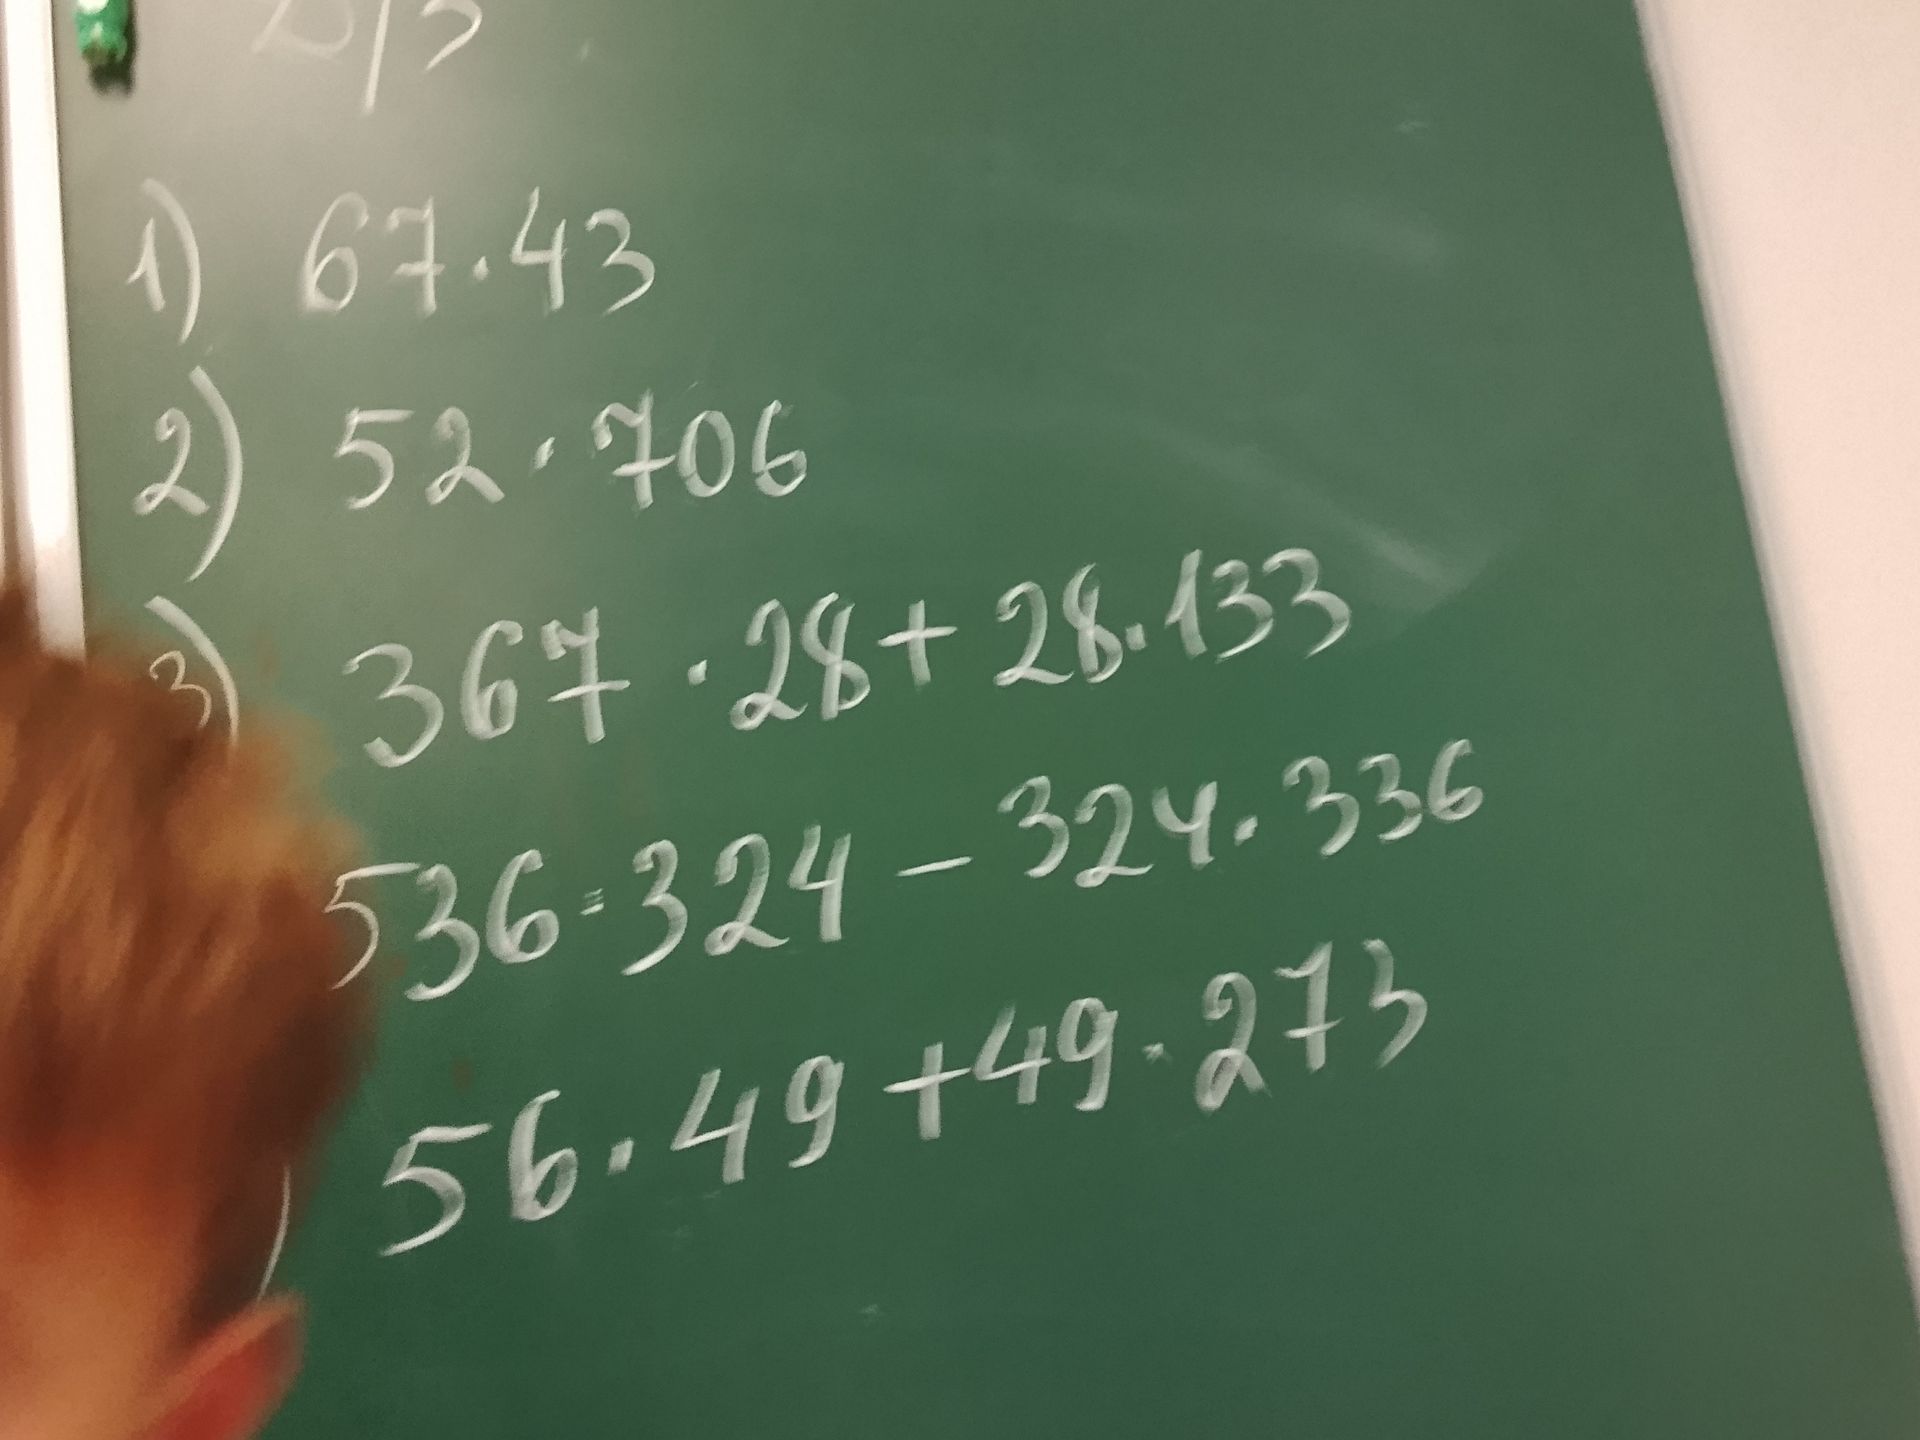 Д/З
1) 67·43
2) 52·706
3) 367·28+28·133
536·324-324·336
) 56·49+49·273